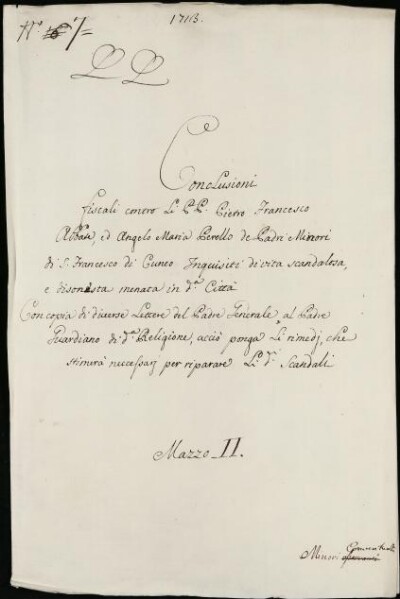 1713.
N.º 7=
P P
Conclusioni
fiscali contro Li PP. Pietro Francesco
Abbate, ed Angelo Maria Perello de Padri Minori
di S. Francesco di Cuneo Inquisiti di vita scandalosa,
e disonesta menata in d.ª Città
Con copia di diverse Lettere del Padre Generale al Padre
Guardiano di d.ª Religione, acciò ponga Li rimedj, che
stimerà necessarj per riparare Li d.i Scandali
Mazzo II.
Minori